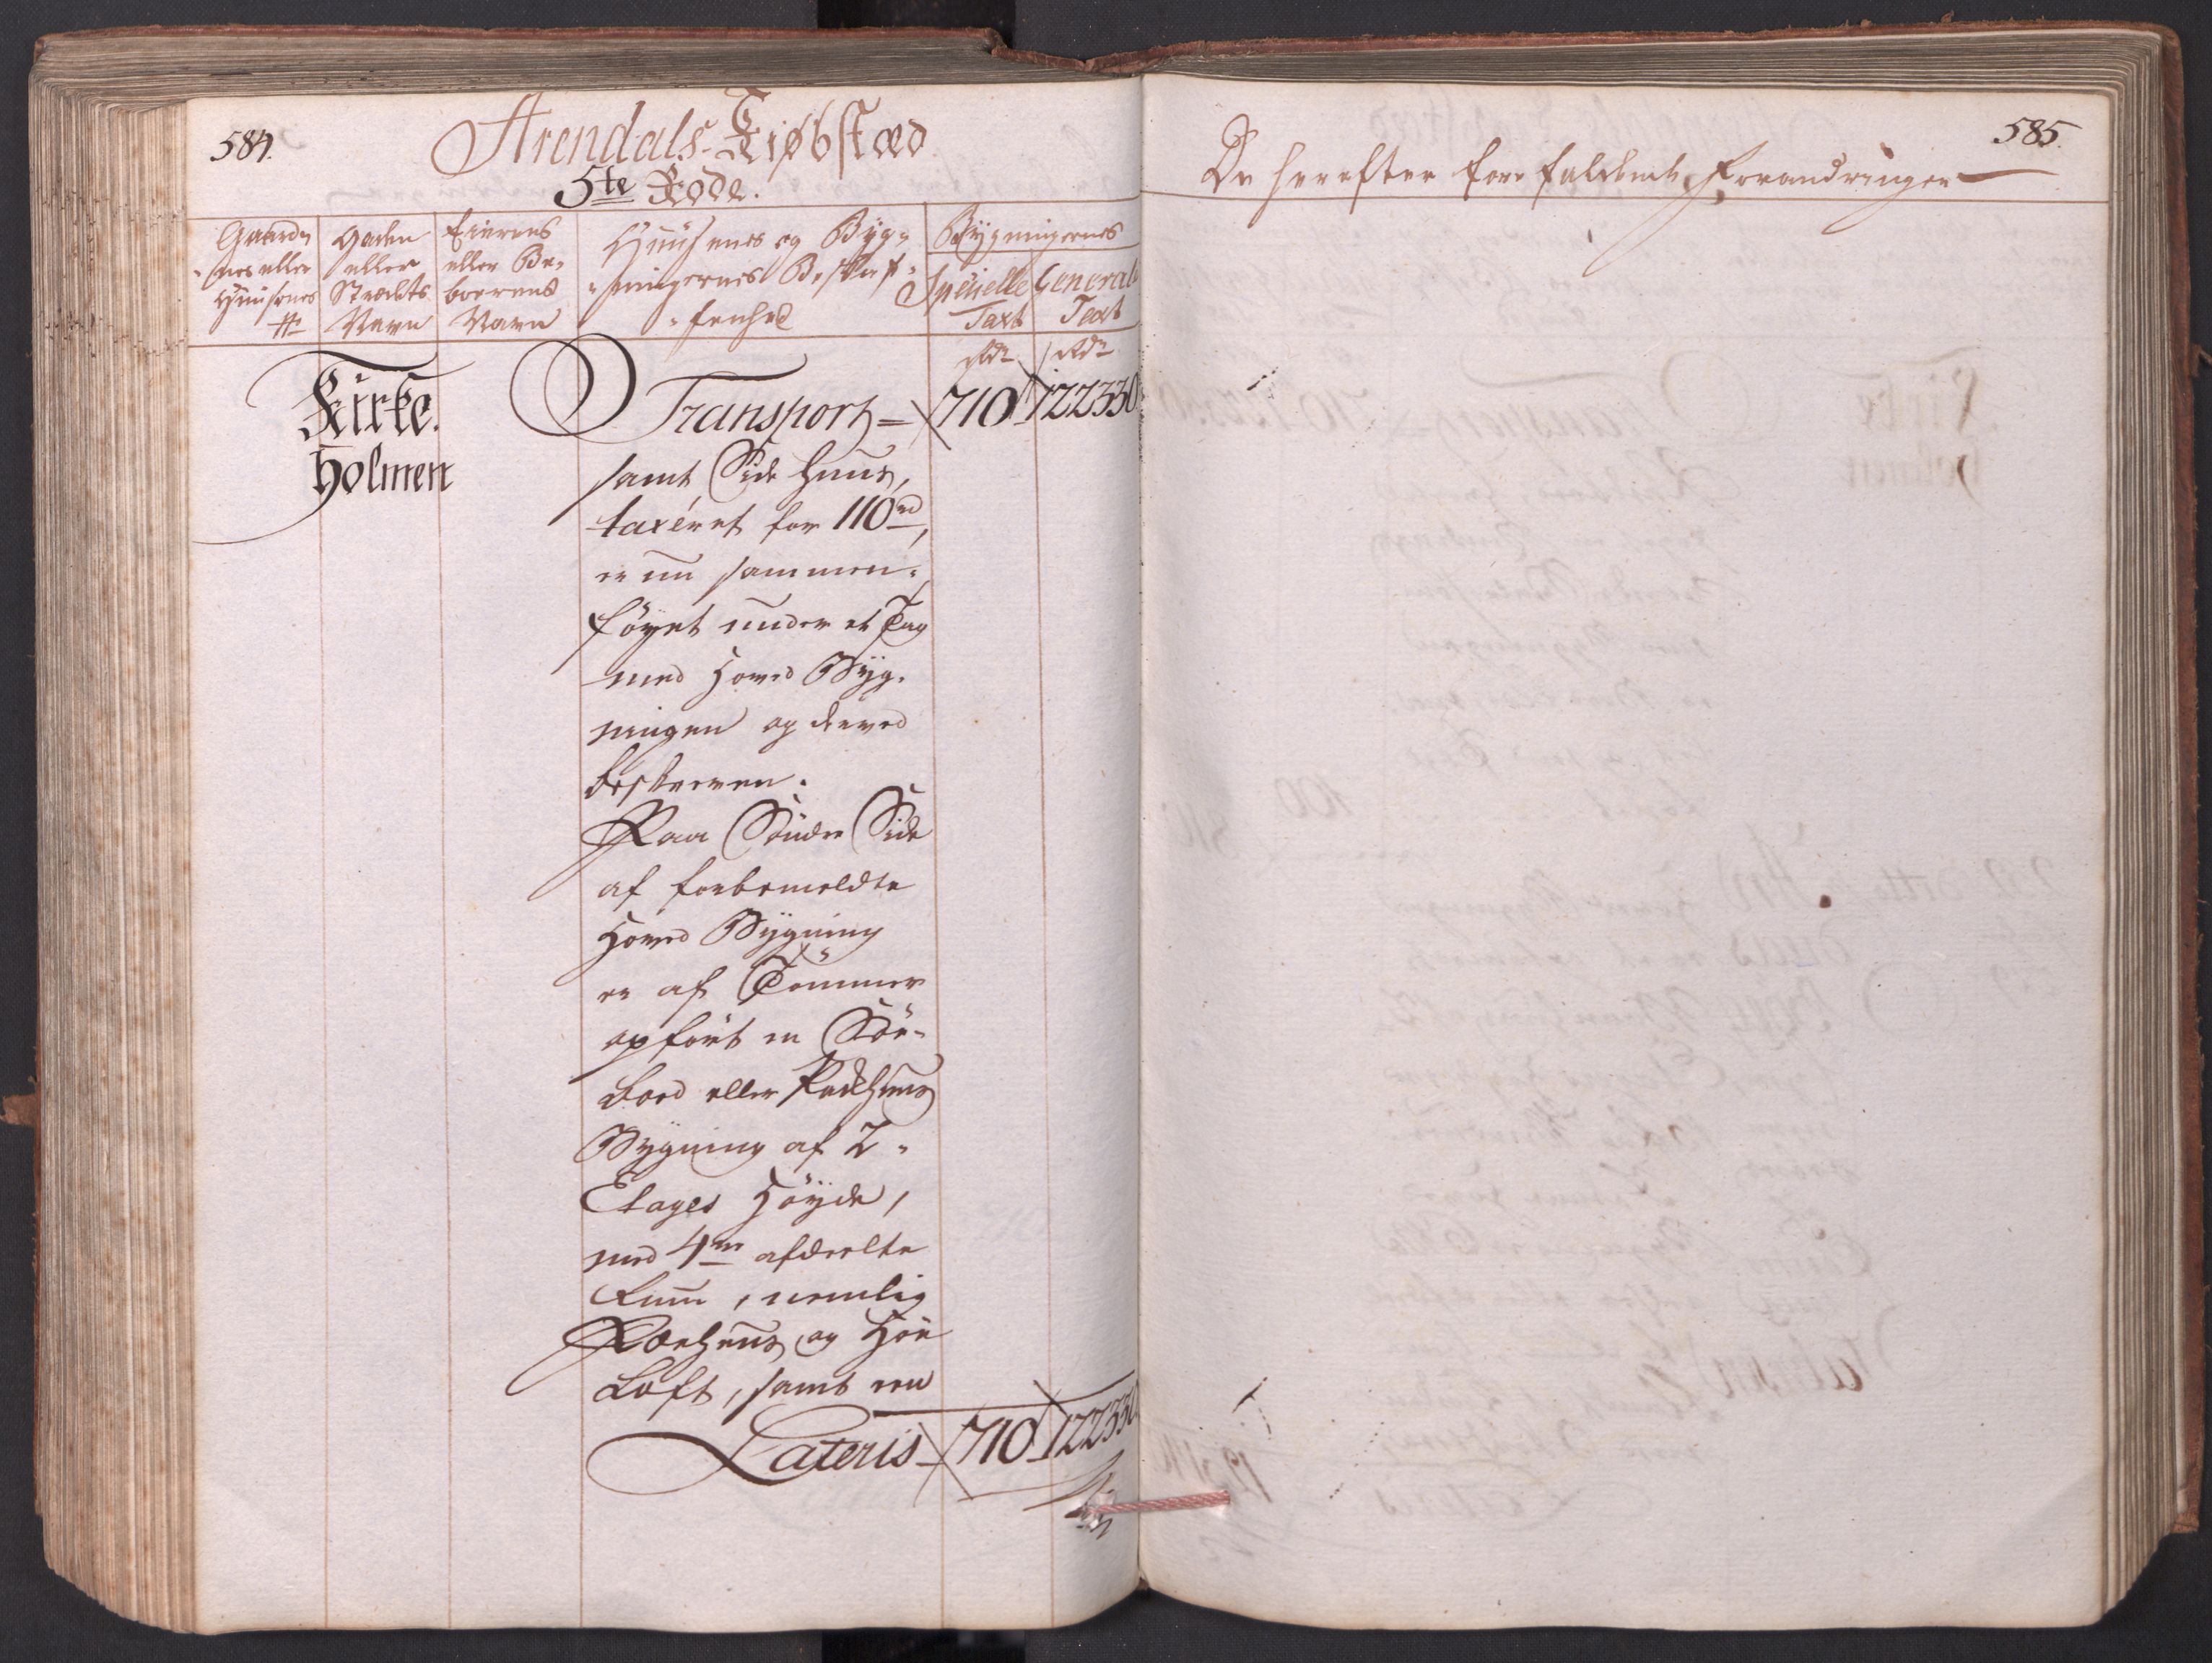 584.
Arendals Kiøbstæd
5te Rode.
Gaarde-
nes eller
Huusenes
#
Gaden
eller
Strædets
Navn
Eierens
eller Be-
boerens
Navn
Huusenes og Byg-
ningernes Beskaf-
fenhed
Bygningernes
Specielle
Taxt
General
Taxt
Rdr
Rdr
Kirke
Holmen
Transport = 710 122330
samt Side Huus,
taxéret for 110rd,
er nu sammen-
föyet under et Tag
med Hoved Byg-
ningen og derved
beskreven.
Paa Söndre Side
af forbemeldte
Hoved Bygning
er af Tömmer
opfört en Söe-
boed eller Pakhuus
Bygning af 2
Etages Höyde,
med 4re afdeelte
Rum, nemlig
og Höe
Loft, samt een
Lateris 710 122330
585.
De herefter forefaldende Forandringer